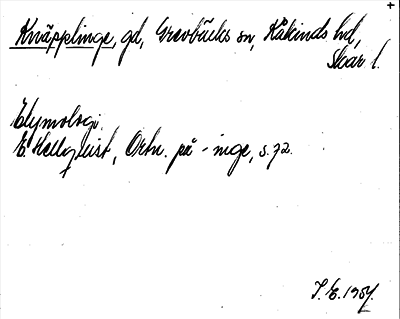 Knäpplinge, gd, Grevbäcks sn, Kåkinds hd,
Skar. l.
Etymologi.
E. Hellquist, Ortn. på -inge, s. 72.
I. E. 1954.